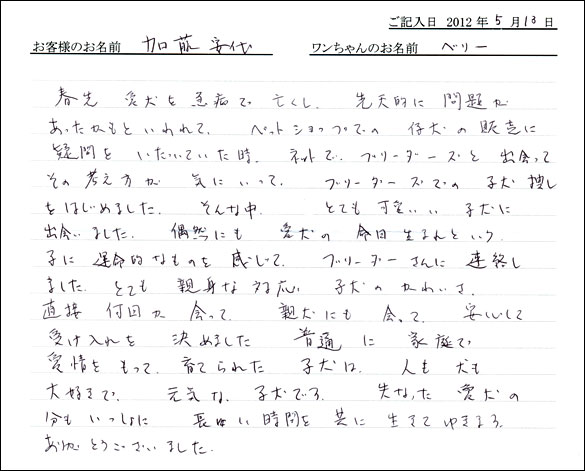 ご記入日 2012年5月13日
お客様のお名前 加藤安代 ワンちゃんのお名前 ベリー
春先 愛犬を急病で亡くし、先天的に問題が
あったかもといわれて、ペットショップでの仔犬の販売に
疑問をいだいていた時、ネットで、ブリーダーズと出会って
その考え方が気にいって、ブリーダーズでの子犬捜し
をはじめました。そんな中、とても可愛いい子犬に
出会いました。偶然にも愛犬の命日生まれという
子に運命的なものを感じて、ブリーダーさんに連絡し
ました。とても親身な対応、子犬のかわいさ、
直接何回か会って、親犬にも会って、安心して
受け入れを決めました 普通に家庭で
愛情をもって、育てられた子犬は、人も犬も
大好きで、元気な子犬でス。失なった愛犬の
分もいっしょに 長ーい時間を共に生きてゆきまス。
ありがとうございました。